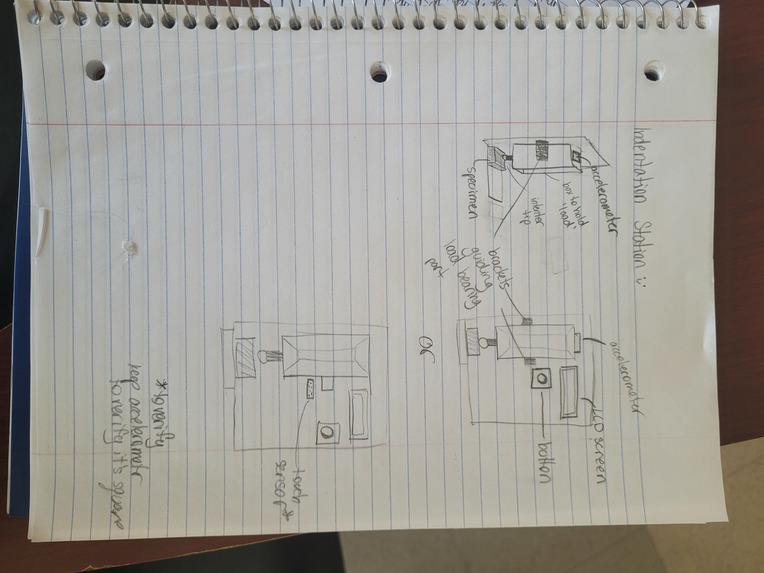 Indentation Station :)
accelerometer
box to hold
"load"
indenter
tip
specimen
brackets
guiding
load bearing
part
accelerometer
LCD screen
button
OR
touch
sensor*
*to verify
keep accelerometr
to varify it's square